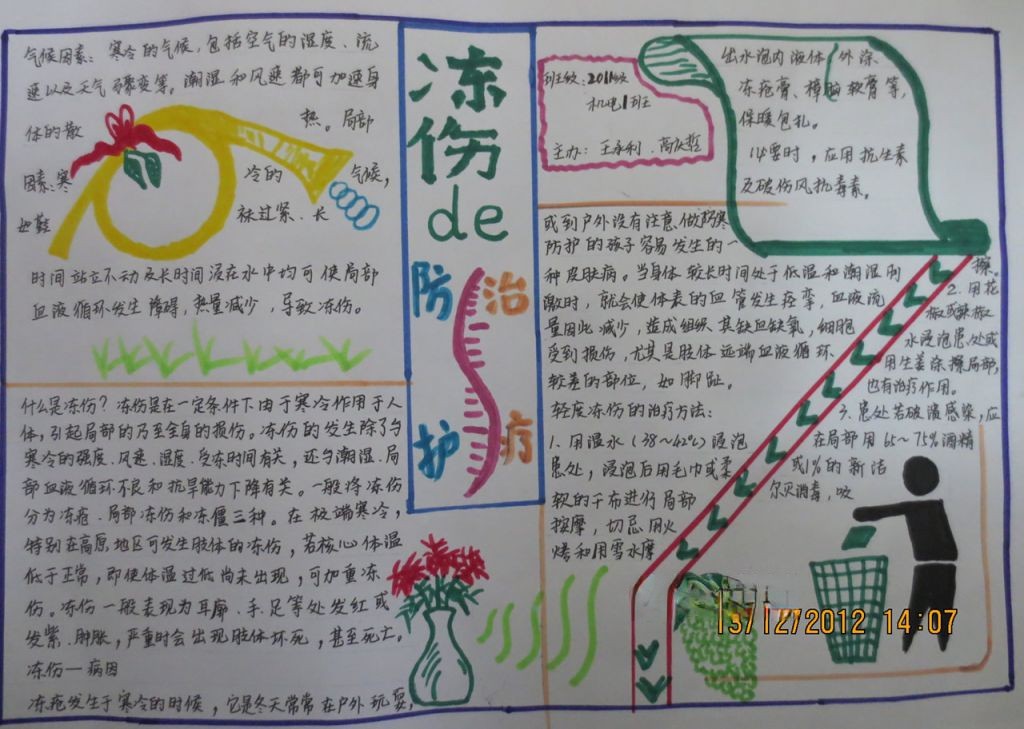 气候因素：寒冷的气候，包括空气的湿度、流
速以及天气骤变等。潮湿和风速都可加速身
体的散 热。局部
因素：寒 冷的 气候，
如鞋 袜过紧、长
时间站立不动及长时间浸在水中均可使局部
血液循环发生障碍，热量减少，导致冻伤。
什么是冻伤？冻伤是在一定条件下由于寒冷作用于人
体，引起局部的乃至全身的损伤。冻伤的发生除了与
寒冷的强度、风速、湿度、受冻时间有关，还与潮湿、局
部血液循环不良和抗旱能力下降有关。一般将冻伤
分为冻疮、局部冻伤和冻僵三种。在极端寒冷，
特别在高原地区可发生肢体的冻伤，若核心体温
低于正常，即使体温过低尚未出现，可加重冻
伤。冻伤一般表现为耳廓、手、足等处发红或
发紫、肿胀，严重时会出现肢体坏死，甚至死亡。
冻伤一病因
冻疮发生于寒冷的时候，它是冬天常常在户外玩耍，
冻
伤
de
防 治
护 疗
班级：2011级
机电1班
主办：王永利、高
出水泡内液体，外涂
冻疮膏、樟脑软膏等，
保暖包扎。
必要时，应用抗生素
及破伤风抗毒素。
或到户外没有注意做防寒
防护的孩子容易发生的一
种皮肤病。当身体较长时间处于低温和潮湿刺
激时，就会使体表的血管发生痉挛，血液流
量因此减少，造成组织其缺血缺氧，细胞
受到损伤，尤其是肢体远端血液循环
较差的部位，如脚趾。
轻度冻伤的治疗方法：
1、用温水（38～42℃）浸泡
患处，浸泡后用毛巾或柔
软的干布进行局部
按摩，切忌用火
烤和用雪水摩
擦。
2、用花
椒或辣椒
水浸泡患处或
用生姜涂擦局部，
也有治疗作用。
3、患处若破溃感染，应
在局部用65～75%酒精
或1%的新洁
尔灭消毒，吸
13/12/2012 14:07